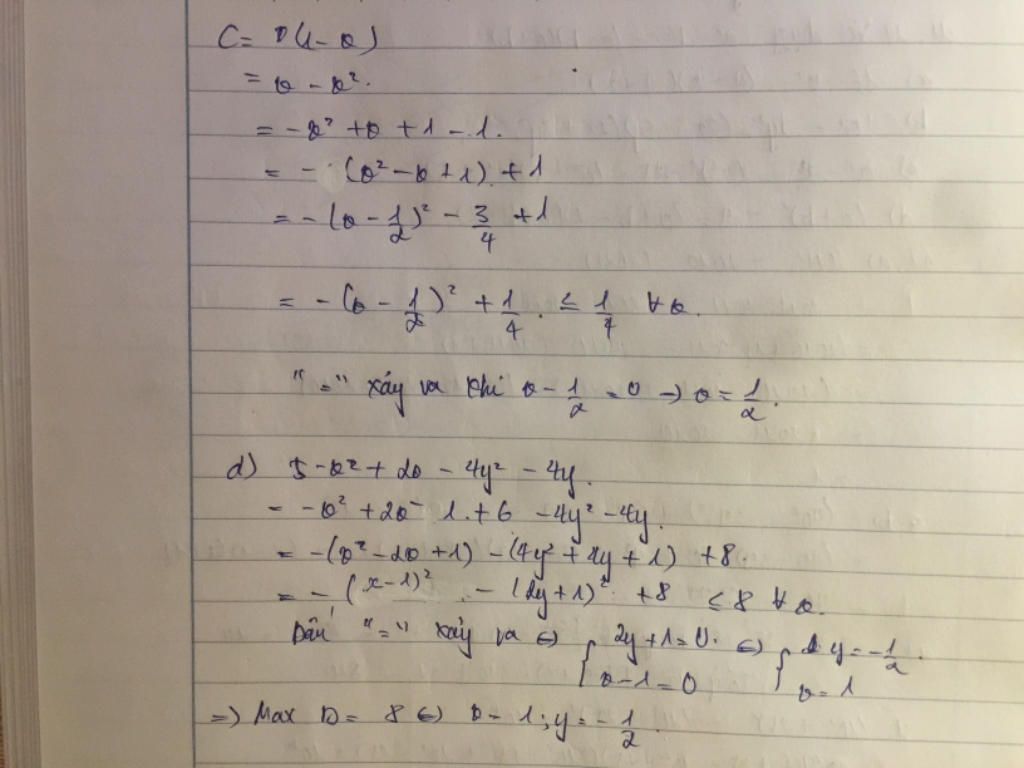 C = x(1 - x)
= x - x².
= -x² + x + 1 - 1.
= - (x² - x + 1) + 1
= -(x - 1/2)² - 3/4 + 1
= -(x - 1/2)² + 1/4 . ≤ 1/4 ∀x.
"=" xảy ra khi x - 1/2 = 0 → x = 1/2.
d) 5 - x² + 2x - 4y² - 4y.
= -x² + 2x - 1 + 6 - 4y² - 4y.
= -(x² - 2x + 1) - (4y² + 4y + 1) + 8.
= -(x - 1)² - (2y + 1)² + 8 ≤ 8 ∀x.
Dấu "=" xảy ra ⇔ { 2y + 1 = 0. x - 1 = 0 ⇔ { y = -1/2. x = 1
=> Max D = 8 ⇔ x = 1 ; y = -1/2.